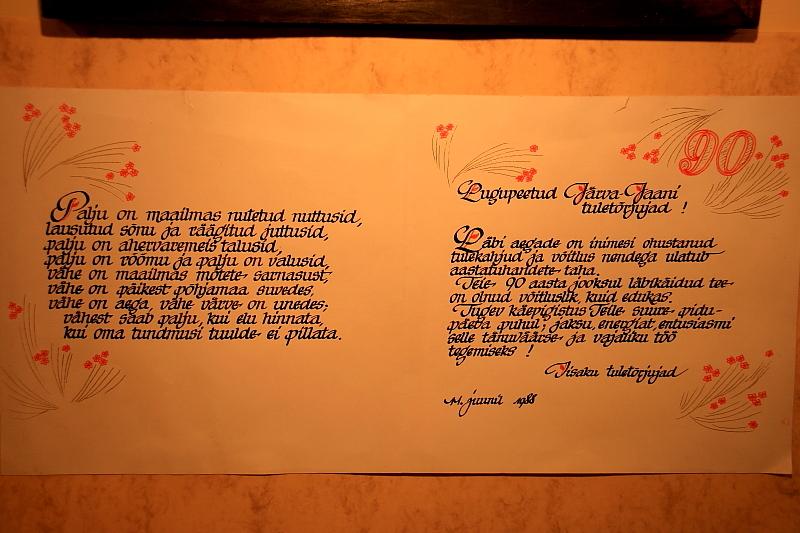 Palju on maailmas nutetud nuttusid,
lausutud sõnu ja räägitud juttusid,
palju on ahervaremeis talusid,
palju on rõõmu ja palju on valusid,
vähe on maailmas mõtete sarnasust,
vähe on päikest põhjamaa suvedes,
vähe on aega, vähe värve on unedes;
vähest saab palju, kui elu hinnata,
kui oma tundmusi tuulde ei pillata.
90
Lugupeetud Järva-Jaani
tuletõrjujad !
Läbi aegade on inimesi ohustanud
tulekahjud ja võitlus nendega ulatub
aastatuhandete taha.
Teie 90 aasta jooksul läbikäidud tee
on olnud võitluslik, kuid edukas.
Tugev käepigistus Teile suure pidu-
päeva puhul; jaksu, energiat, entusiasmi
selle tänuväärse ja vajaliku töö
tegemiseks !
Iisaku tuletõrjujad
11. juunil 1988